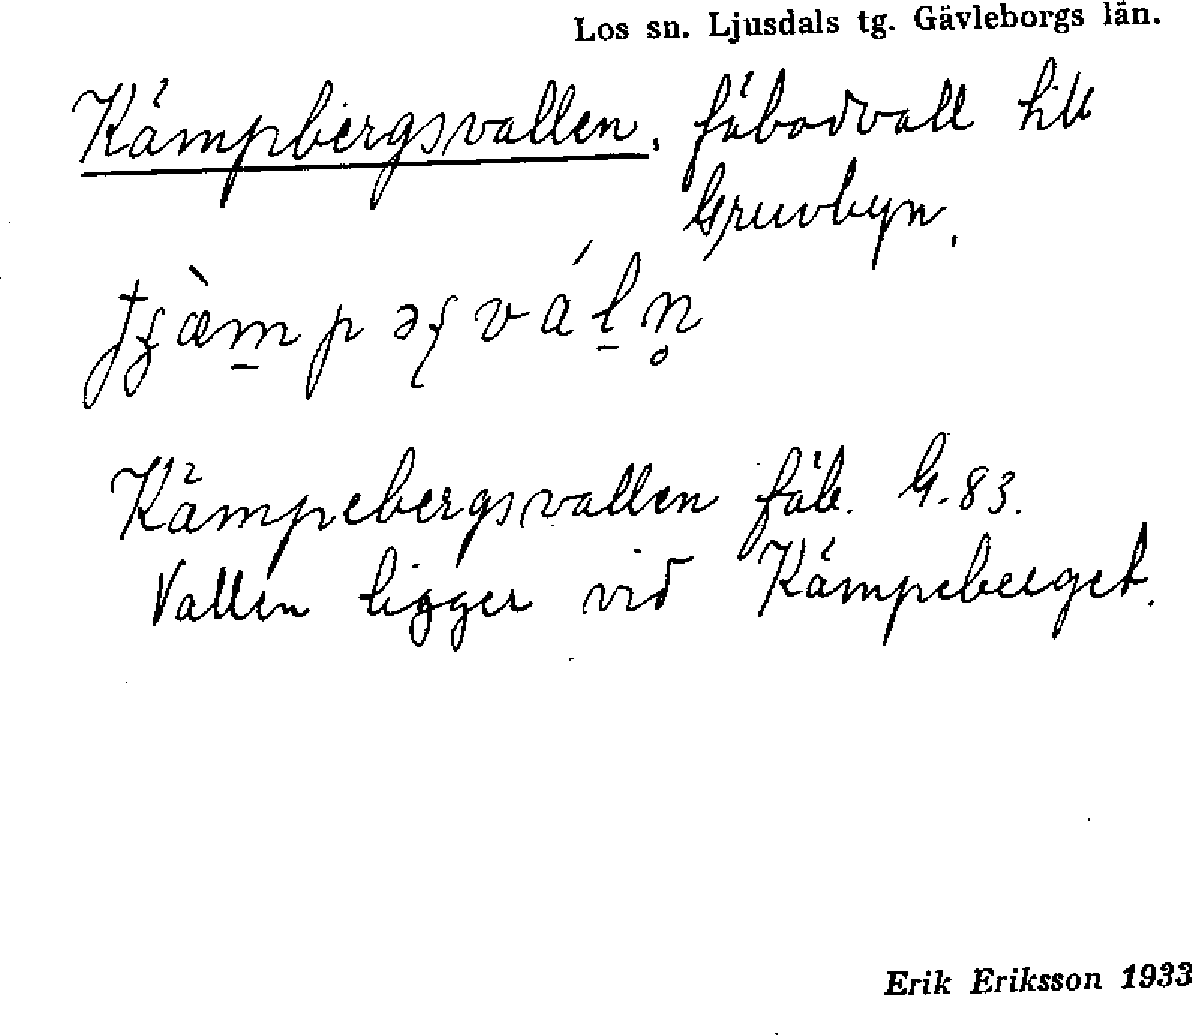 Los sn. Ljusdals tg. Gävleborgs län.
Kämpbergsvallen, fäbodvall till
Gruvbyn.
Kämpebergsvallen fäb. G. 83.
Vallen ligger vid Kämpeberget.
Erik Eriksson 1933